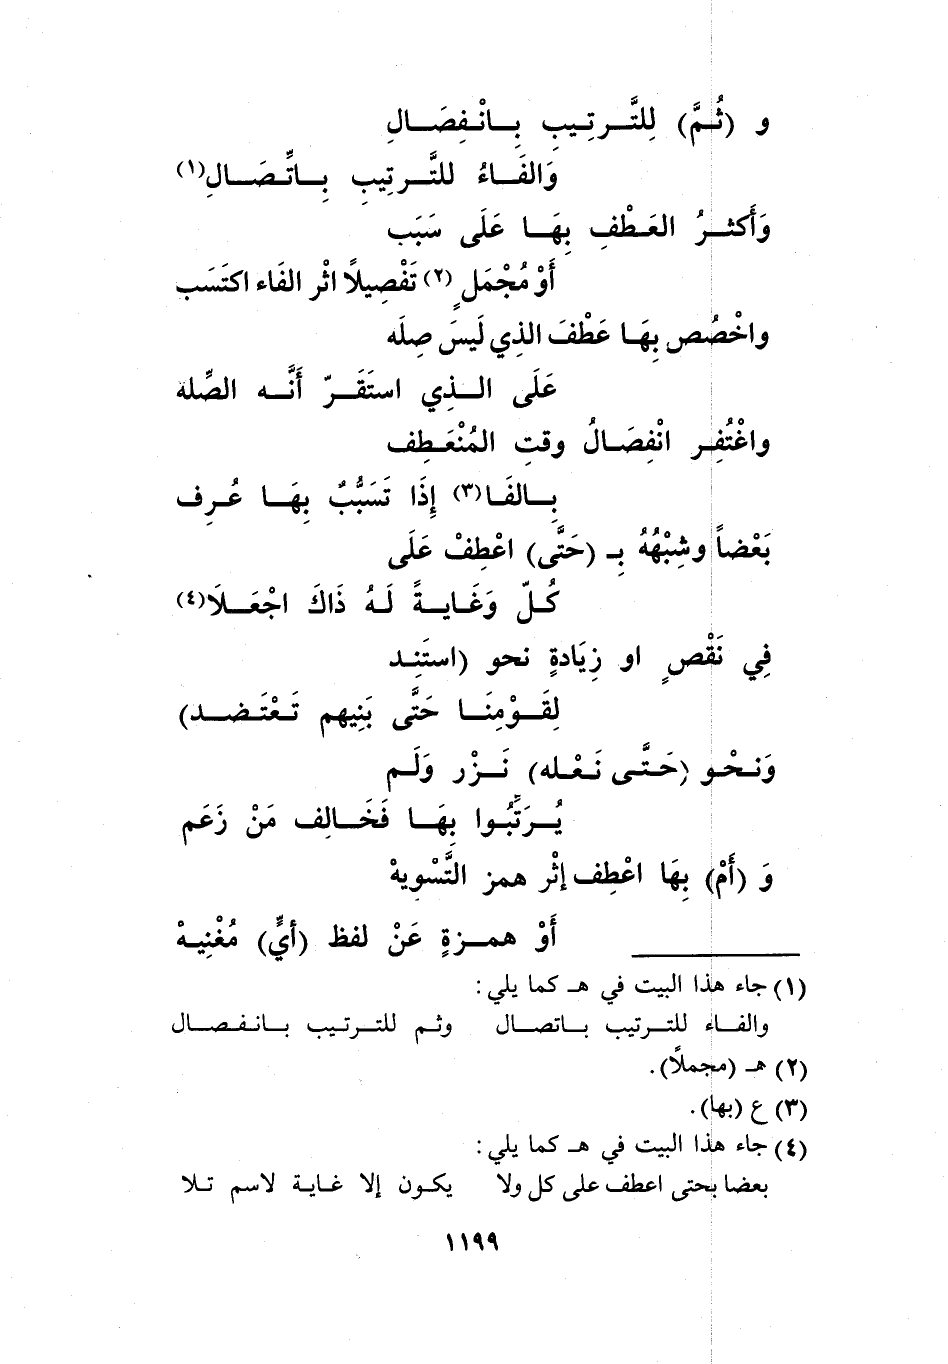 و (ثُمَّ) لِلتَّرتِيبِ بِانْفِصَالِ
وَالفَاءُ للتَّرتِيبِ بِاتِّصَالِ(١)
وَأَكثرُ العَطْفِ بِهَا عَلَى سَبَب
أَوْ مُجْمَلٍ(٢) تَفْصِيلاً اثْر الفَاء اكتَسَب
واخْصُص بِهَا عَطْفَ الذِي لَيسَ صِلَه
عَلَى الذِي استَقَرّ أَنَّه الصِّلة
واغْتُفِر انْفِصَالُ وقتِ المُنْعَطِف
بِالفَا(٣) إِذَا تَسَبُّبٌ بِهَا عُرِف
بَعْضاً وشِبْهُهُ بِـ (حَتَّى) اعْطِفْ عَلَى
كُلّ وَغَايةً لَهُ ذَاكَ اجْعَلَا(٤)
فِي نَقْصٍ او زِيَادةٍ نحو (استَنِد
لِقَوْمِنَا حَتَّى بَنِيهم تَعْتَضد)
وَنحْو (حَتَّى نَعْله) نَزْر وَلَم
يُرَتِّبُوا بِهَا فَخَالِف مَنْ زَعَم
وَ (أَمْ) بِهَا اعْطِف إثْر همز التَّسْويهْ
أَوْ همزةٍ عَنْ لفظ (أيٍّ) مُغْنِيهْ
(١) جاء هذا البيت في هـ كما يلي:
والفاء للترتيب باتصال وثم للترتيب بانفصال
(٢) هـ (مجملاً).
(٣) ع (بها).
(٤) جاء هذا البيت في هـ كما يلي:
بعضا بحتى اعطف على كل ولا يكون إلا غاية لاسم تلا
١١٩٩